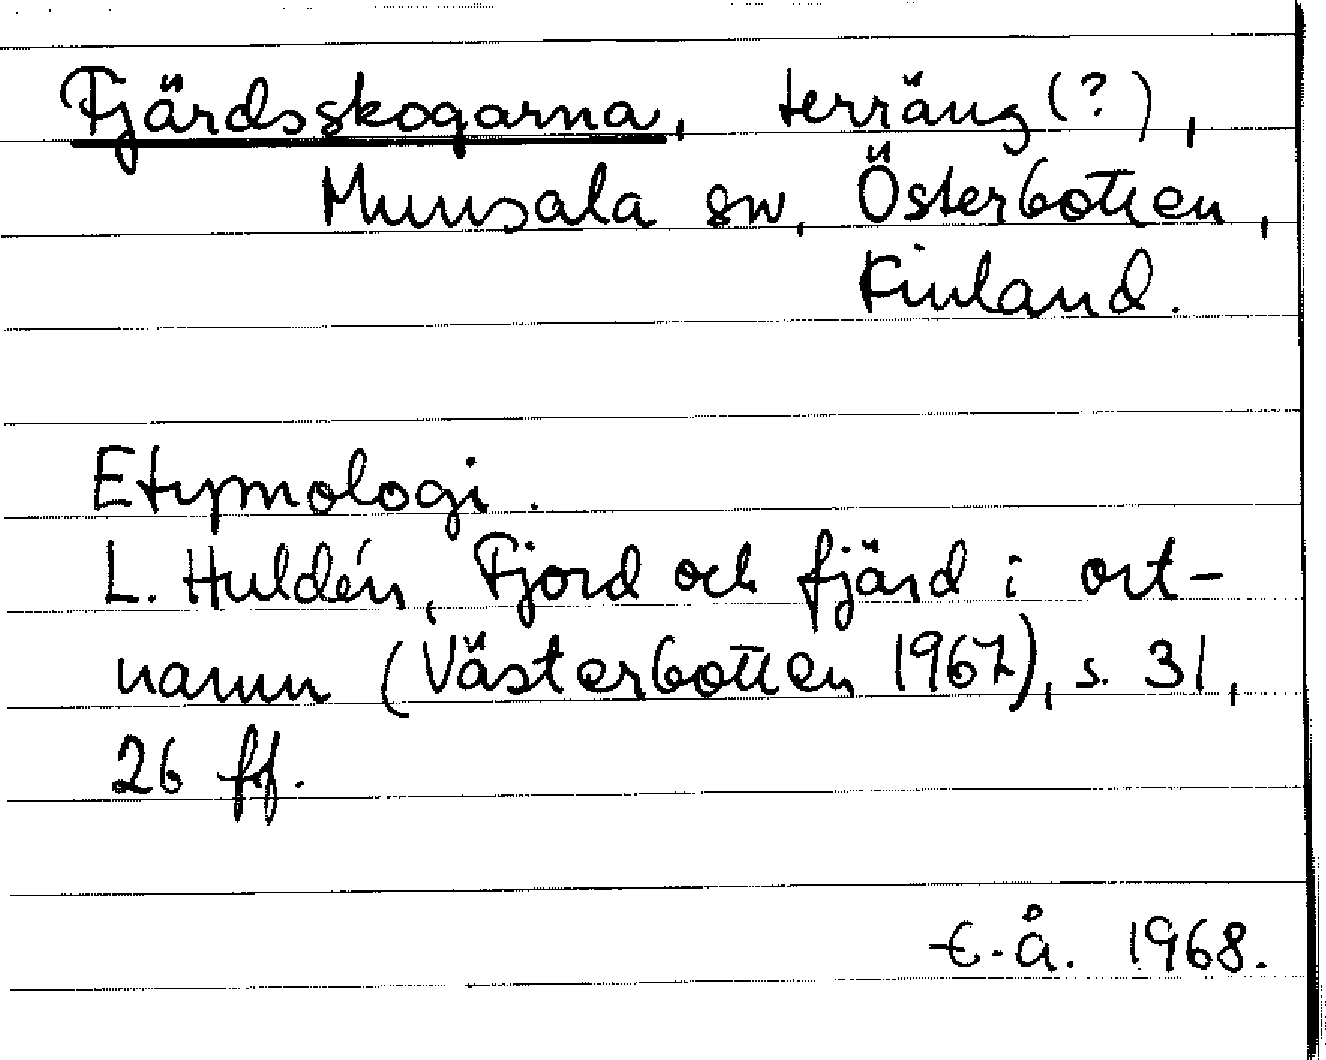 Fjärdsskogarna, terräng(?),
Munsala sn, Österbotten,
Finland.
Etymologi.
L. Huldén, Fjord och fjärd i ort-
namn (Västerbotten 1967), s. 31,
26 ff.
E.Å. 1968.